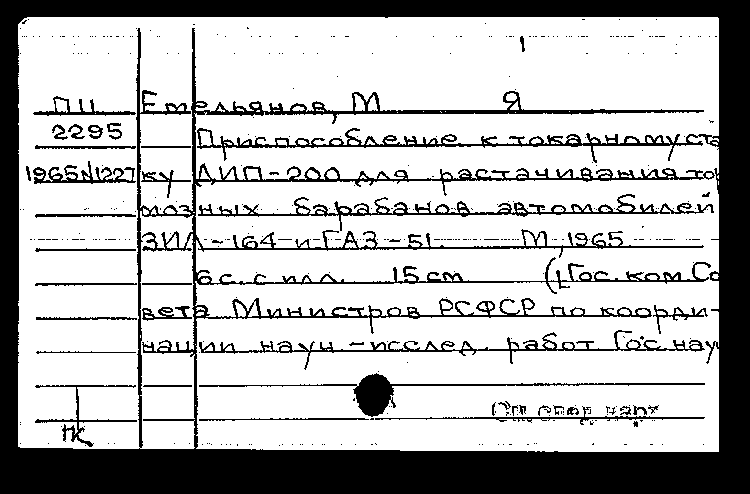 ПЦ Емельянов, М Я
2295 Приспособление к токарному ста
1965N1227 ку ДИП-200 для расстачивания тор
мозных барабанов автомобилей
ЗИЛ-164 и ГАЗ-51. М, 1965
6 с. с илл. 15 см (Гос. ком. Со
вета Министров РСФСР по коорди-
нации науч-исслед. работ Гос нау
См. след. карт.
ПК